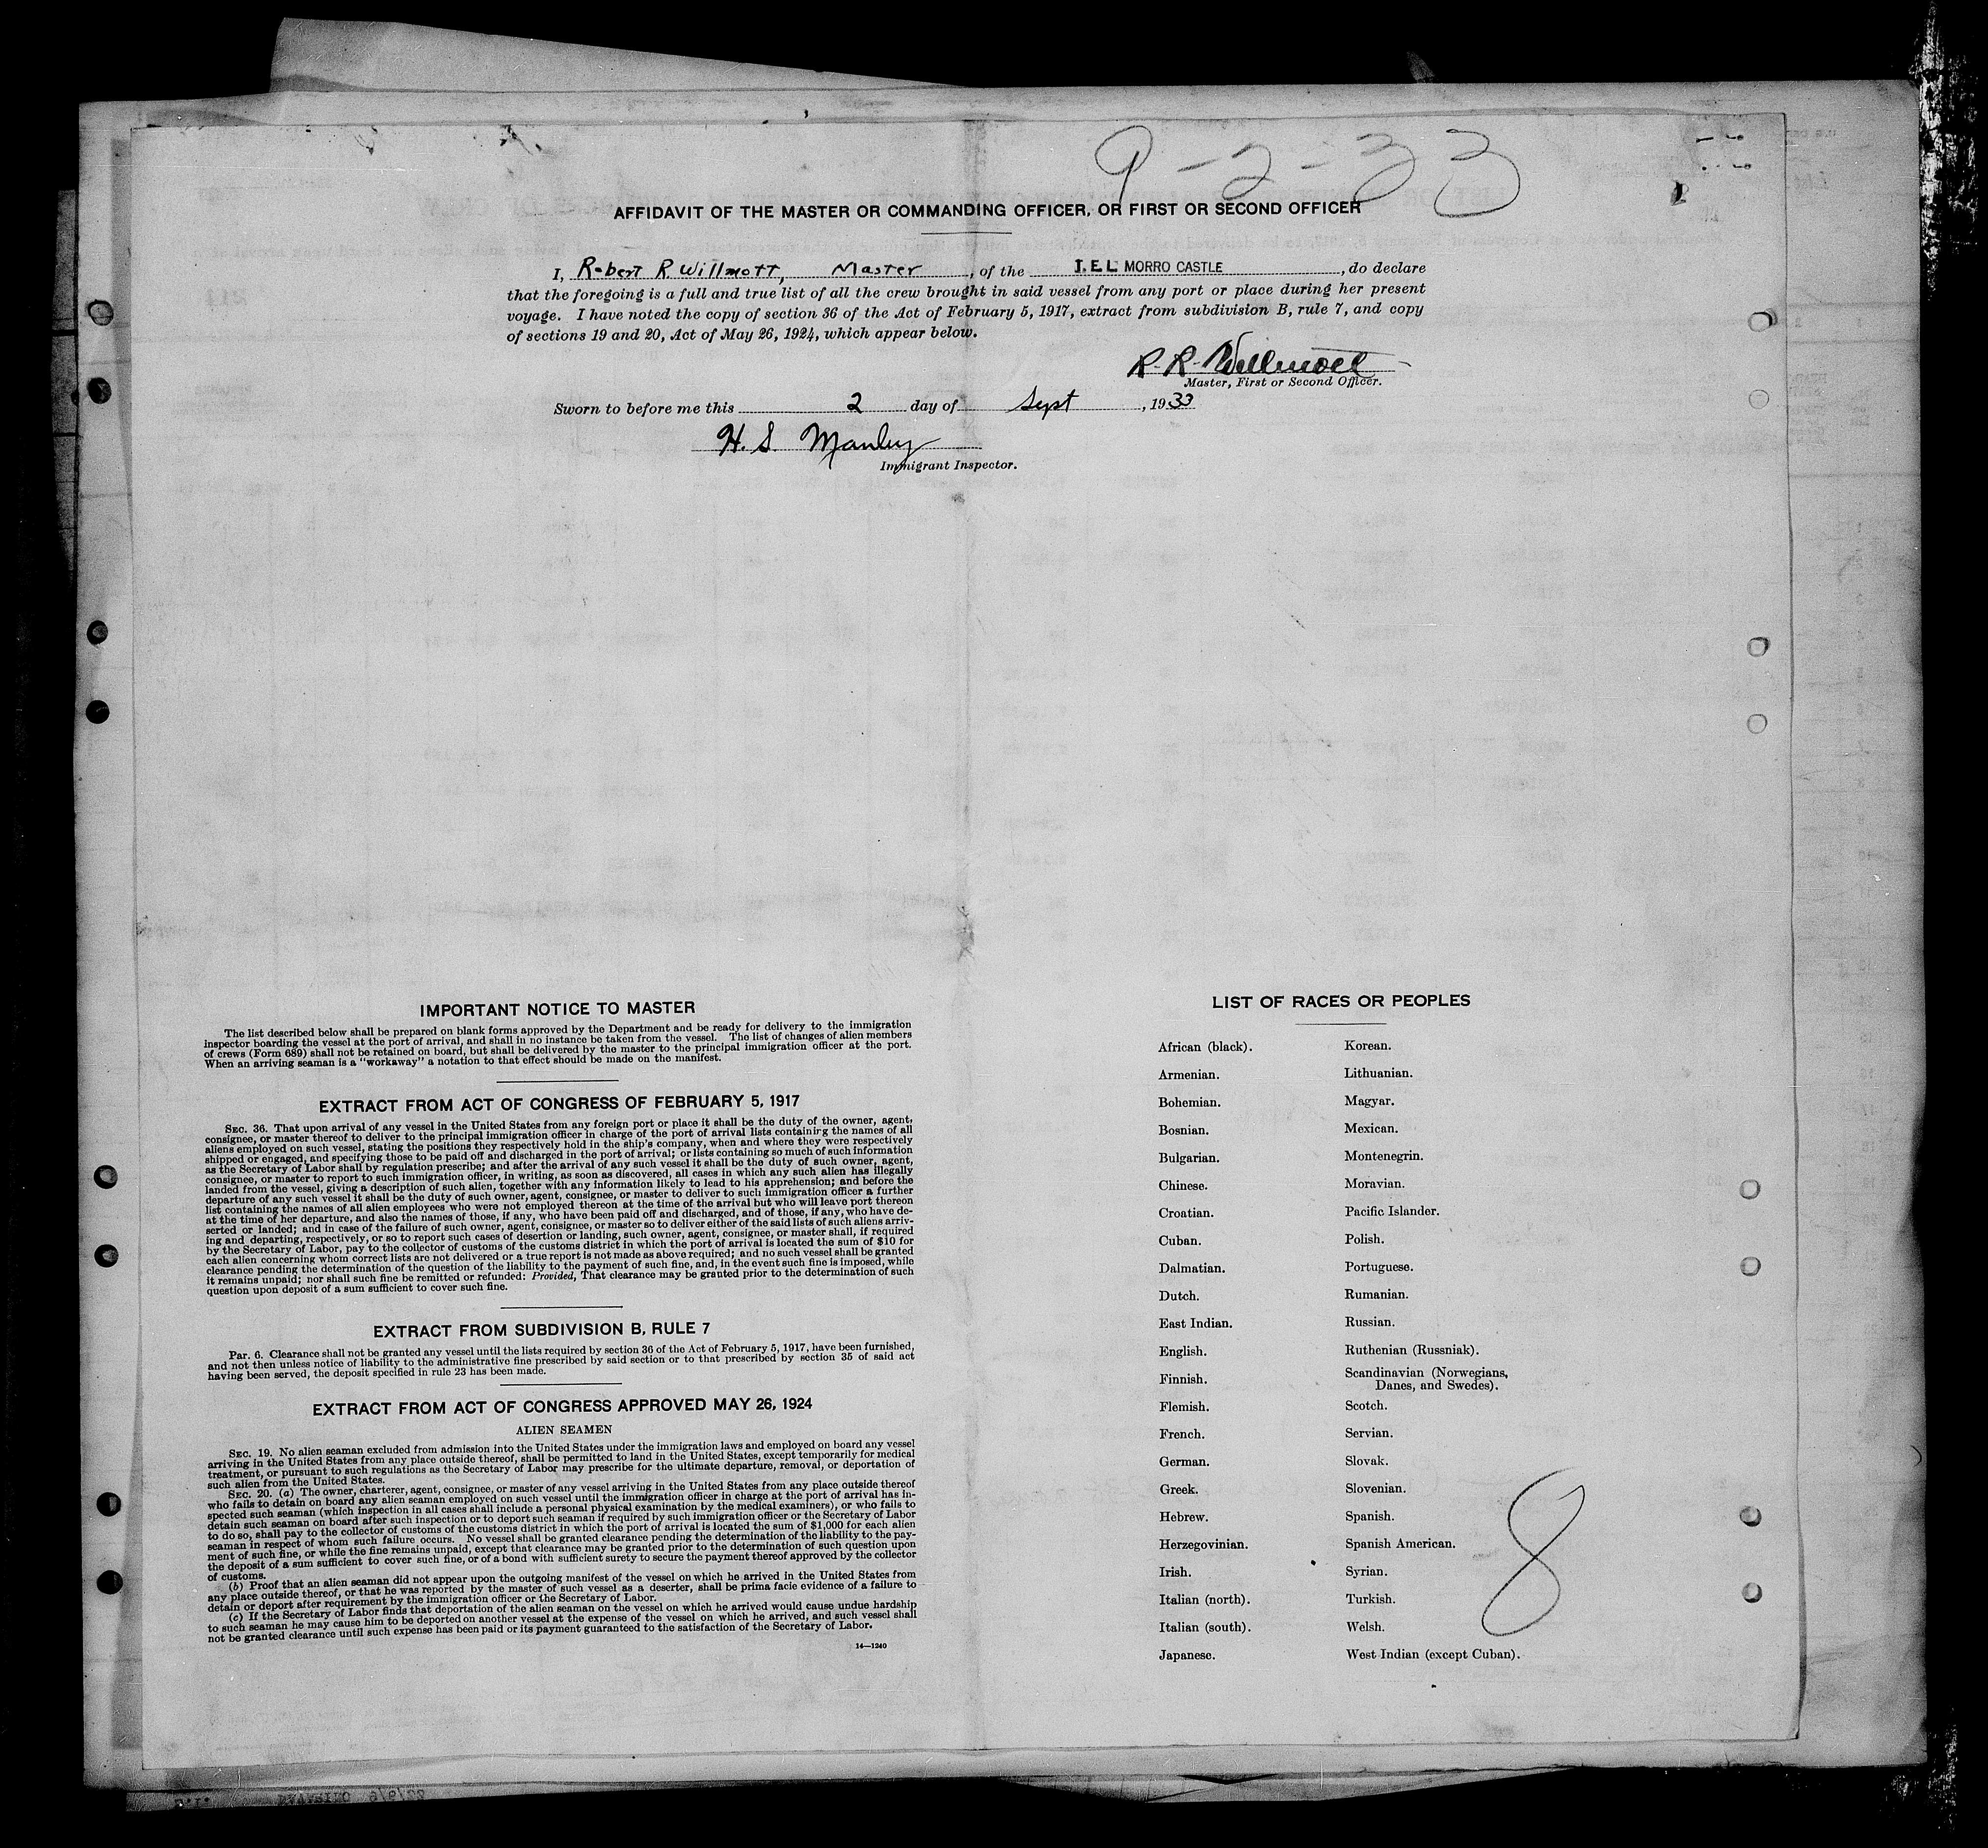 9-2-33
AFFIDAVIT OF THE MASTER OR COMMANDING OFFICER, OR FIRST OR SECOND OFFICER
I, Robert R Willmott, Master, of the T.E.L MORRO CASTLE, do declare
that the foregoing is a full and true list of all the crew brought in said vessel from any port or place during her present
voyage. I have noted the copy of section 36 of the Act of February 5, 1917, extract from subdivision B, rule 7, and copy
of sections 19 and 20, Act of May 26, 1924, which appear below.
R. R. Willmott
Master, First or Second Officer.
Sworn to before me this 2 day of Sept, 1933
H. S. Manley
Immigrant Inspector.
IMPORTANT NOTICE TO MASTER
The list described below shall be prepared on blank forms approved by the Department and be ready for delivery to the immigration
inspector boarding the vessel at the port of arrival, and shall in no instance be taken from the vessel. The list of changes of alien members
of crews (Form 689) shall not be retained on board, but shall be delivered by the master to the principal immigration officer at the port.
When an arriving seaman is a "workaway" a notation to that effect should be made on the manifest.
EXTRACT FROM ACT OF CONGRESS OF FEBRUARY 5, 1917
SEC. 36. That upon arrival of any vessel in the United States from any foreign port or place it shall be the duty of the owner, agent,
consignee, or master thereof to deliver to the principal immigration officer in charge of the port of arrival lists containing the names of all
aliens employed on such vessel, stating the positions they respectively hold in the ship's company, when and where they were respectively
shipped or engaged, and specifying those to be paid off and discharged in the port of arrival; or lists containing so much of such information
as the Secretary of Labor shall by regulation prescribe; and after the arrival of any such vessel it shall be the duty of such owner, agent,
consignee, or master to report to such immigration officer, in writing, as soon as discovered, all cases in which any such alien has illegally
landed from the vessel, giving a description of such alien, together with any information likely to lead to his apprehension; and before the
departure of any such vessel it shall be the duty of such owner, agent, consignee, or master to deliver to such immigration officer a further
list containing the names of all alien employees who were not employed thereon at the time of the arrival but who will leave port thereon
at the time of her departure, and also the names of those, if any, who have been paid off and discharged, and of those, if any, who have de-
serted or landed; and in case of the failure of such owner, agent, consignee, or master so to deliver either of the said lists of such aliens arriv-
ing and departing, respectively, or so to report such cases of desertion or landing, such owner, agent, consignee, or master shall, if required
by the Secretary of Labor, pay to the collector of customs of the customs district in which the port of arrival is located the sum of $10 for
each alien concerning whom correct lists are not delivered or a true report is not made as above required; and no such vessel shall be granted
clearance pending the determination of the question of the liability to the payment of such fine, and, in the event such fine is imposed, while
it remains unpaid; nor shall such fine be remitted or refunded: Provided, That clearance may be granted prior to the determination of such
question upon deposit of a sum sufficient to cover such fine.
EXTRACT FROM SUBDIVISION B, RULE 7
Par. 6. Clearance shall not be granted any vessel until the lists required by section 36 of the Act of February 5, 1917, have been furnished,
and not then unless notice of liability to the administrative fine prescribed by said section or to that prescribed by section 35 of said act
having been served, the deposit specified in rule 23 has been made.
EXTRACT FROM ACT OF CONGRESS APPROVED MAY 26, 1924
ALIEN SEAMEN
SEC. 19. No alien seaman excluded from admission into the United States under the immigration laws and employed on board any vessel
arriving in the United States from any place outside thereof, shall be permitted to land in the United States, except temporarily for medical
treatment, or pursuant to such regulations as the Secretary of Labor may prescribe for the ultimate departure, removal, or deportation of
such alien from the United States.
SEC. 20. (a) The owner, charterer, agent, consignee, or master of any vessel arriving in the United States from any place outside thereof
who fails to detain on board any alien seaman employed on such vessel until the immigration officer in charge at the port of arrival has in-
spected such seaman (which inspection in all cases shall include a personal physical examination by the medical examiners), or who fails to
detain such seaman on board after such inspection or to deport such seaman if required by such immigration officer or the Secretary of Labor
to do so, shall pay to the collector of customs of the customs district in which the port of arrival is located the sum of $1,000 for each alien
seaman in respect of whom such failure occurs. No vessel shall be granted clearance pending the determination of the liability to the pay-
ment of such fine, or while the fine remains unpaid, except that clearance may be granted prior to the determination of such question upon
the deposit of a sum sufficient to cover such fine, or of a bond with sufficient surety to secure the payment thereof approved by the collector
of customs.
(b) Proof that an alien seaman did not appear upon the outgoing manifest of the vessel on which he arrived in the United States from
any place outside thereof, or that he was reported by the master of such vessel as a deserter, shall be prima facie evidence of a failure to
detain or deport after requirement by the immigration officer or the Secretary of Labor.
(c) If the Secretary of Labor finds that deportation of the alien seaman on the vessel on which he arrived would cause undue hardship
to such seaman he may cause him to be deported on another vessel at the expense of the vessel on which he arrived, and such vessel shall
not be granted clearance until such expense has been paid or its payment guaranteed to the satisfaction of the Secretary of Labor.
14—1240
LIST OF RACES OR PEOPLES
African (black).
Armenian.
Bohemian.
Bosnian.
Bulgarian.
Chinese.
Croatian.
Cuban.
Dalmatian.
Dutch.
East Indian.
English.
Finnish.
Flemish.
French.
German.
Greek.
Hebrew.
Herzegovinian.
Irish.
Italian (north).
Italian (south).
Japanese.
Korean.
Lithuanian.
Magyar.
Mexican.
Montenegrin.
Moravian.
Pacific Islander.
Polish.
Portuguese.
Rumanian.
Russian.
Ruthenian (Russniak).
Scandinavian (Norwegians,
Danes, and Swedes).
Scotch.
Servian.
Slovak.
Slovenian.
Spanish.
Spanish American.
Syrian.
Turkish.
Welsh.
West Indian (except Cuban).
8